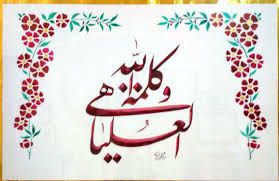 وكلمة الله
هي العليا